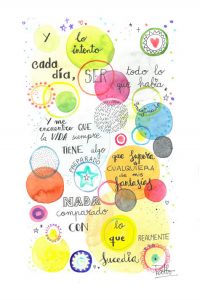 Y lo
intento
cada
día, SER todo lo
que había
Y me
encuentro QUE
la VIDA siempre
TIENE algo
PREPARADO
que supera
CUALQUIERA
de mis
fantasías
NADA
comparado
CON lo
que REALMENTE
sucedía